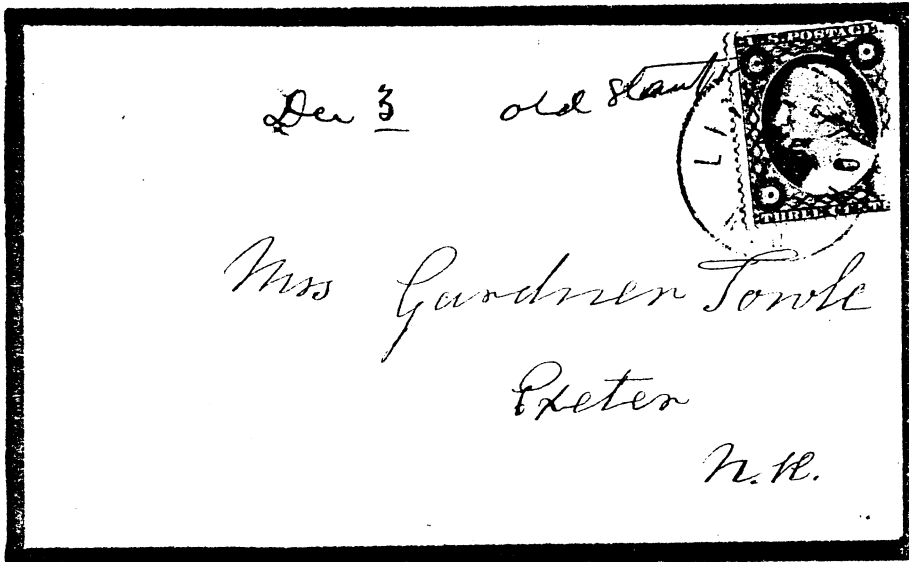 Due 3 old stamp
U.S. POSTAGE
THREE CENTS
Mrs Gardner Towle
Exeter
N.H.